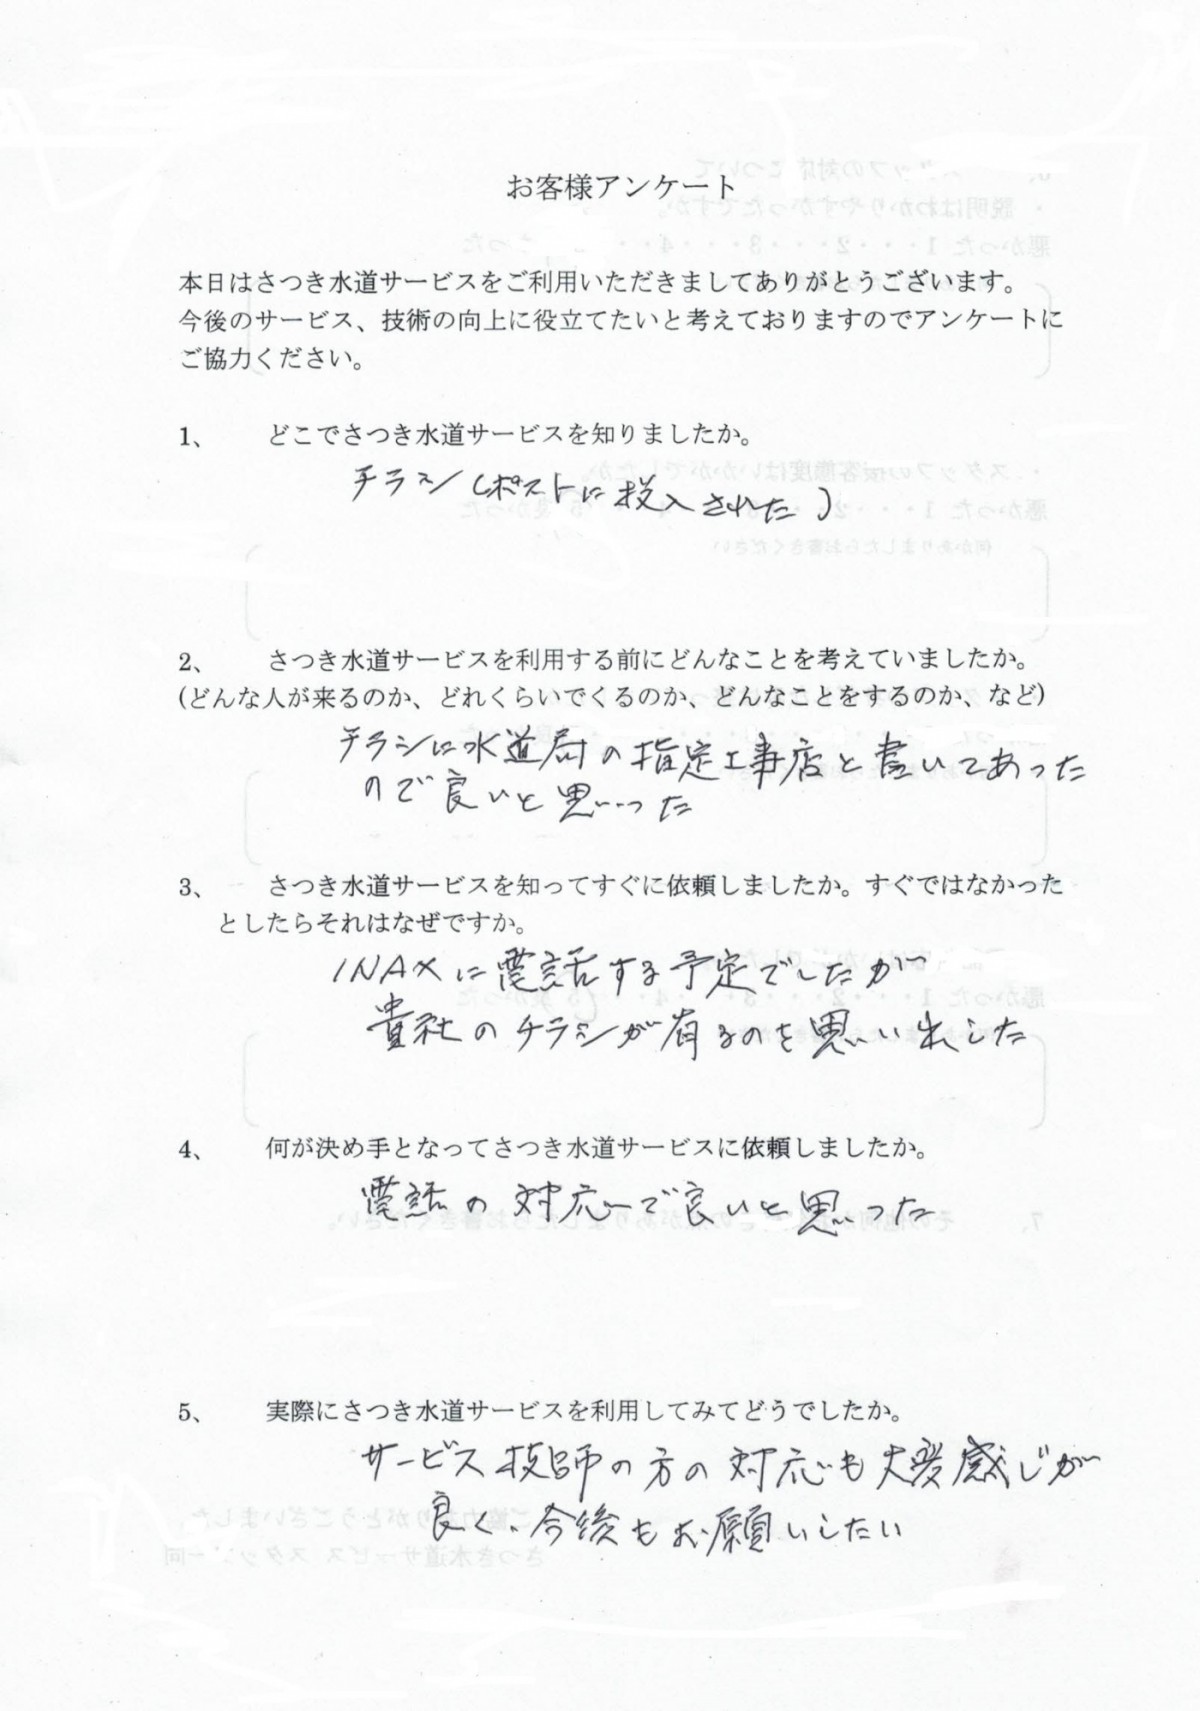 お客様アンケート
本日はさつき水道サービスをご利用いただきましてありがとうございます。
今後のサービス、技術の向上に役立てたいと考えておりますのでアンケートに
ご協力ください。
1、 どこでさつき水道サービスを知りましたか。
チラシ(ポストに投入された)
2、 さつき水道サービスを利用する前にどんなことを考えていましたか。
(どんな人が来るのか、どれくらいでくるのか、どんなことをするのか、など)
チラシに水道局の指定工事店と書いてあった
ので良いと思った
3、 さつき水道サービスを知ってすぐに依頼しましたか。すぐではなかった
としたらそれはなぜですか。
INAXに電話する予定でしたが
貴社のチラシが有るのを思い出した
4、 何が決め手となってさつき水道サービスに依頼しましたか。
電話の対応で良いと思った
5、 実際にさつき水道サービスを利用してみてどうでしたか。
サービス技師の方の対応も大変感じが
良く、今後もお願いしたい